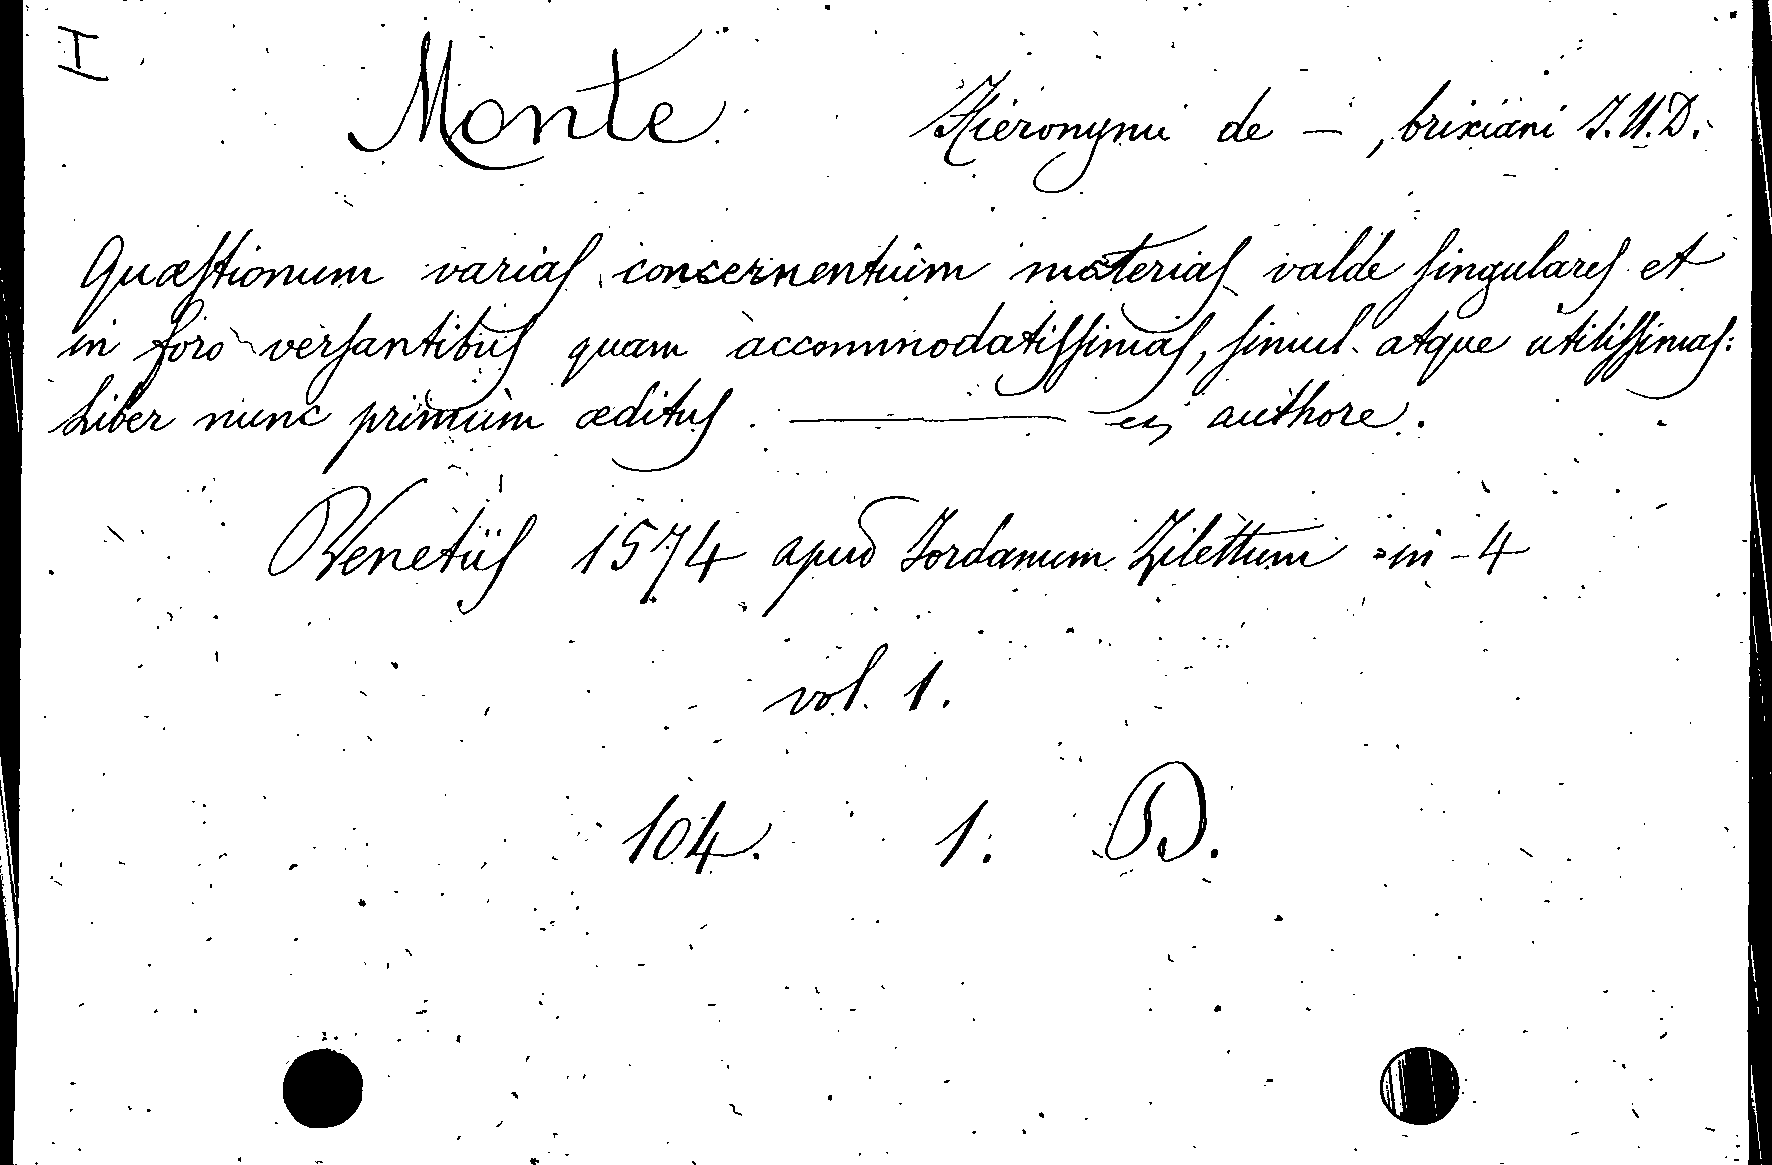 I
Monte Hieronymi de —, brixiani I.U.D.
Quæstionum varias concernentium materias valde singulares et
in foro versantibus quam accommodatissimas, simul atque utilissimas:
Liber nunc primum æditus. ——— authore.
Venetiis 1574 apud Jordanum Zilettum in-4
vol. 1.
104. 1. D.